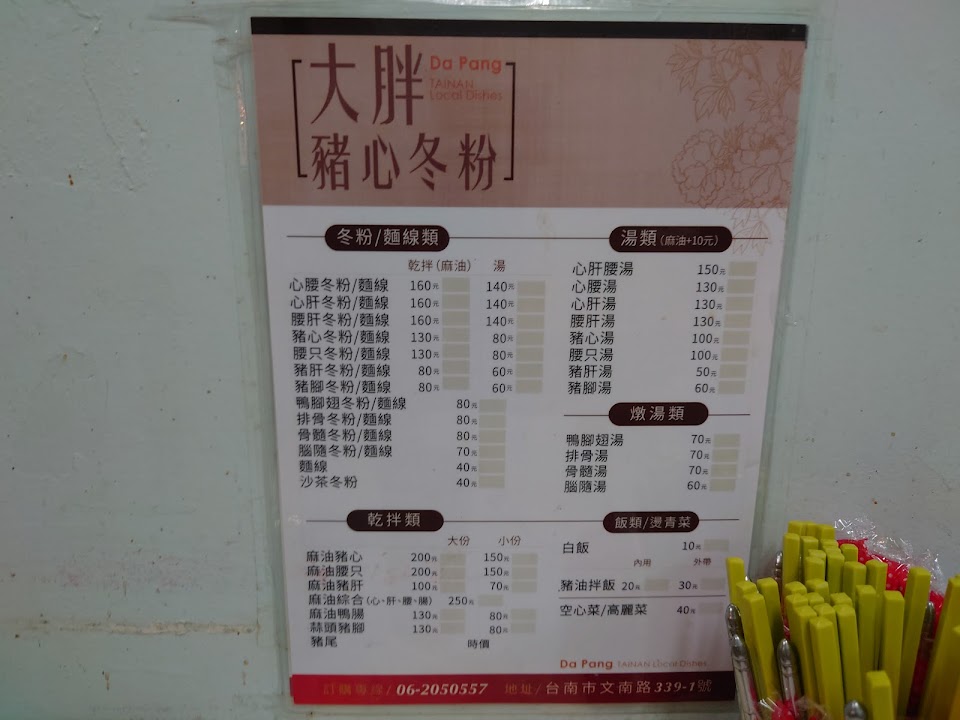 大胖 Da Pang
TAINAN
Local Dishes
豬心冬粉
冬粉/麵線類
乾拌(麻油) 湯
心腰冬粉/麵線 160元 140元
心肝冬粉/麵線 160元 140元
腰肝冬粉/麵線 160元 140元
豬心冬粉/麵線 130元 80元
腰只冬粉/麵線 130元 80元
豬肝冬粉/麵線 80元 60元
豬腳冬粉/麵線 80元 60元
鴨腳翅冬粉/麵線 80元
排骨冬粉/麵線 80元
骨髓冬粉/麵線 80元
腦隨冬粉/麵線 70元
麵線 40元
沙茶冬粉 40元
湯類(麻油+10元)
心肝腰湯 150元
心腰湯 130元
心肝湯 130元
腰肝湯 130元
豬心湯 100元
腰只湯 100元
豬肝湯 50元
豬腳湯 60元
燉湯類
鴨腳翅湯 70元
排骨湯 70元
骨髓湯 70元
腦隨湯 60元
乾拌類
大份 小份
麻油豬心 200元 150元
麻油腰只 200元 150元
麻油豬肝 100元 70元
麻油綜合(心、肝、腰、腸) 250元
麻油鴨腸 130元 80元
蒜頭豬腳 130元 80元
豬尾 時價
飯類/燙青菜
白飯 10元
內用 外帶
豬油拌飯 20元 30元
空心菜/高麗菜 40元
Da Pang TAINAN Local Dishes
訂購專線/06-2050557 地址/台南市文南路339-1號